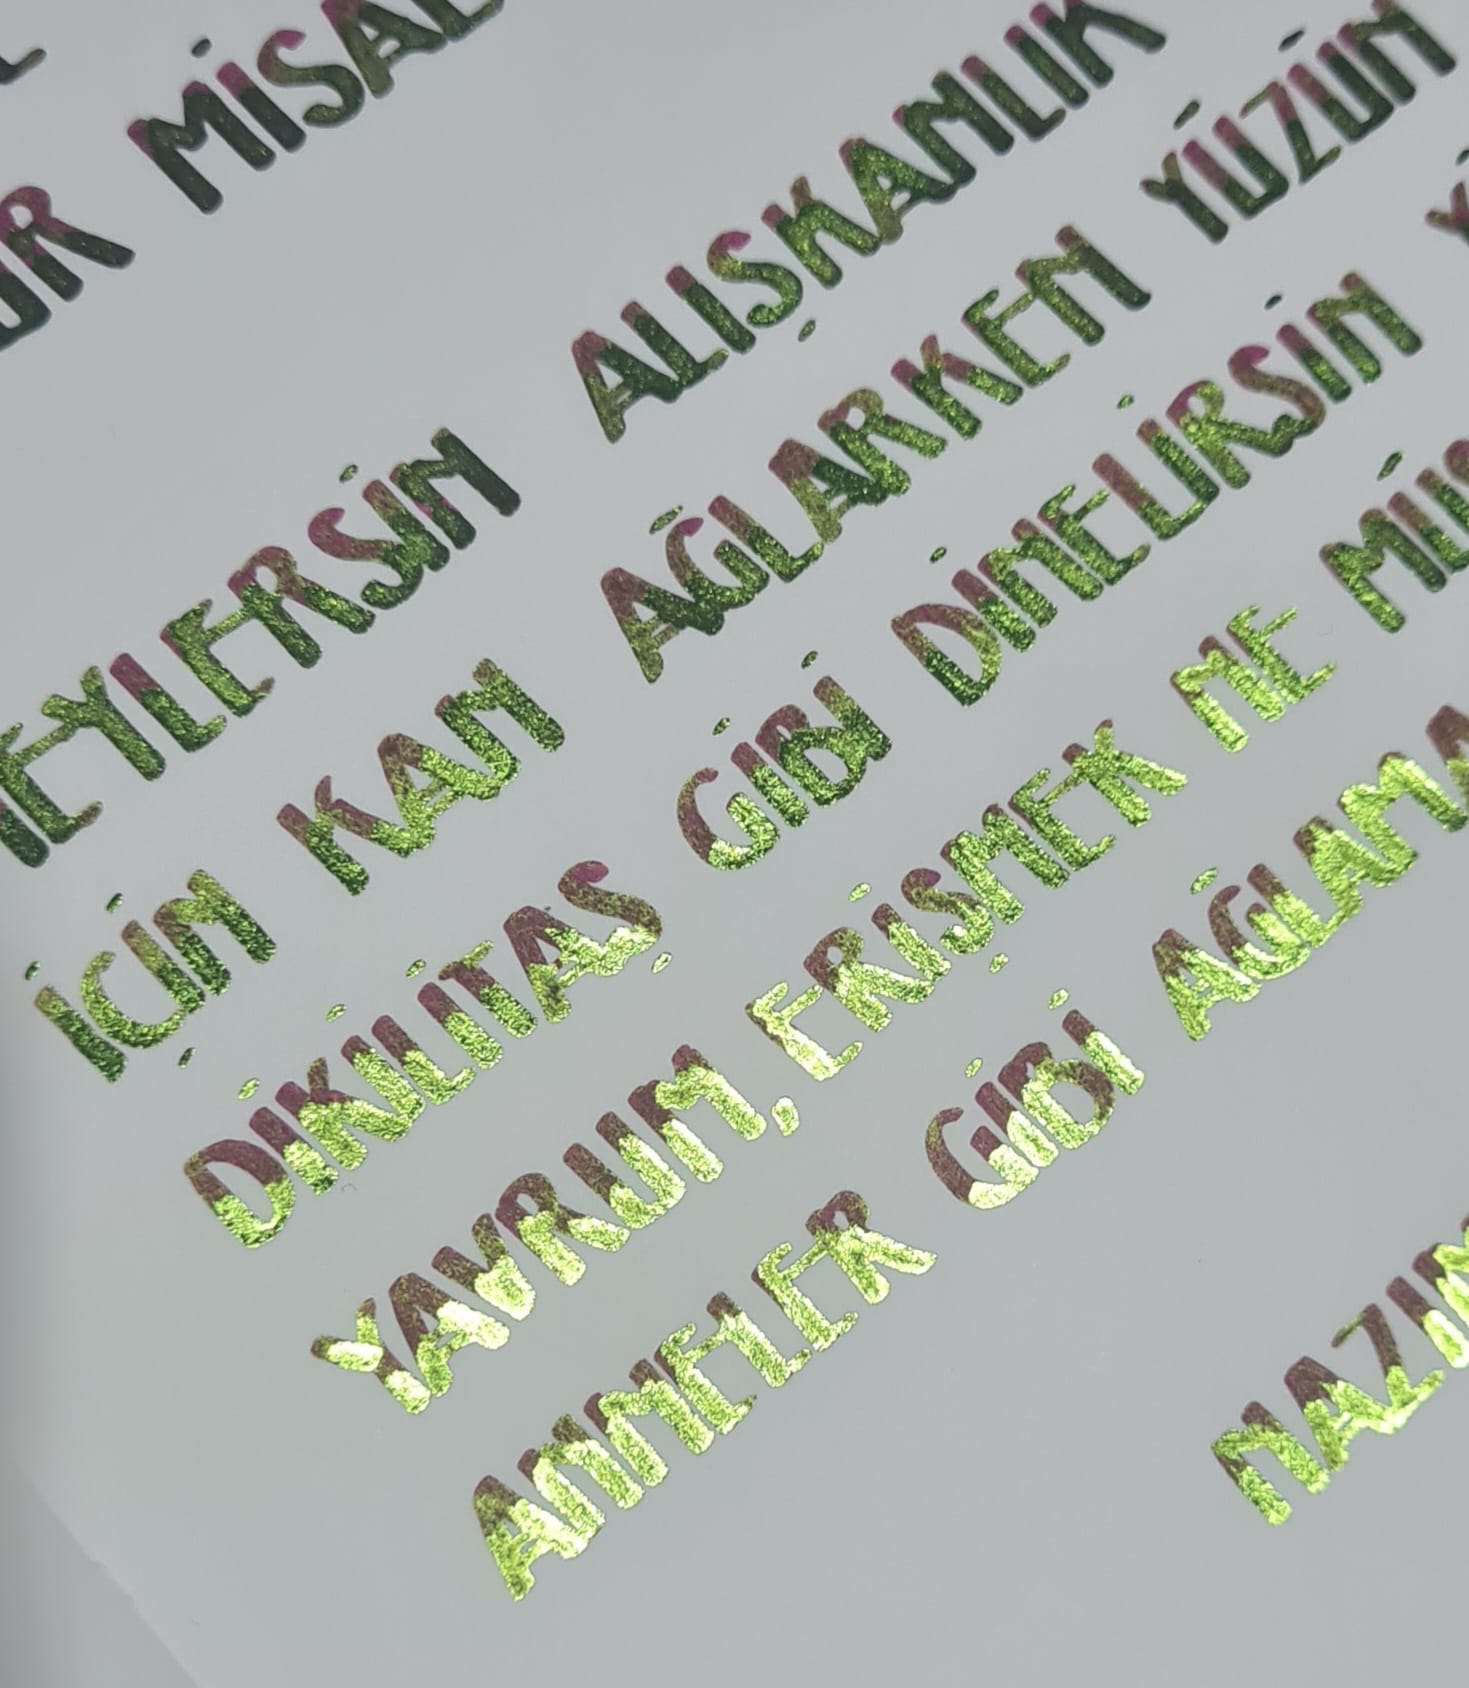 UR MİSAL
NEYLERSİN ALIŞKANLIK
İÇİN KAN AĞLARKEN YÜZÜN
DİKİLİTAŞ GİBİ DİNELİRSİN
YAVRUM, ERİŞMEK NE MÜŞ
ANNELER GİBİ AĞLAMA
NAZIM